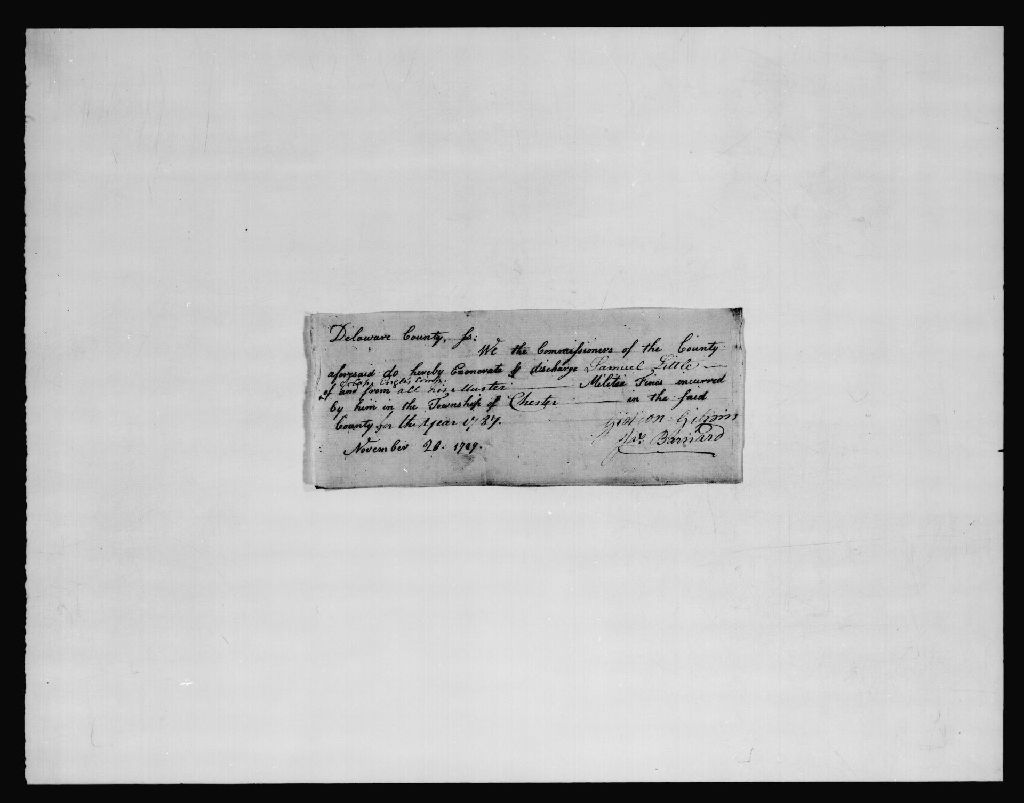 Delaware County, ss.
We the Commissioners of the County
aforesaid do hereby Exonorate & discharge Samuel Little
of and from all his Muster Melitia Fines incurred
by him in the Township of Chester in the said
County for the year 1787.
Gideon Gilpin
Jas. Barnard
November 28. 1789.